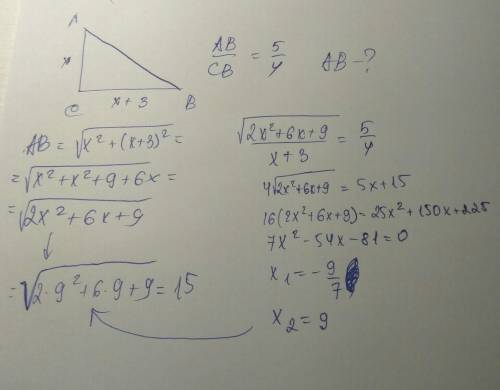 A
x
C
x + 3
B
AB/CB = 5/4
AB - ?
AB = √(x² + (x+3)²) =
= √(x² + x² + 9 + 6x) =
= √(2x² + 6x + 9)
= √(2·9² + 6·9 + 9) = 15
√(2x² + 6x + 9)/(x + 3) = 5/4
4√(2x² + 6x + 9) = 5x + 15
16(2x² + 6x + 9) = 25x² + 150x + 225
7x² - 54x - 81 = 0
x₁ = - 9/7
x₂ = 9